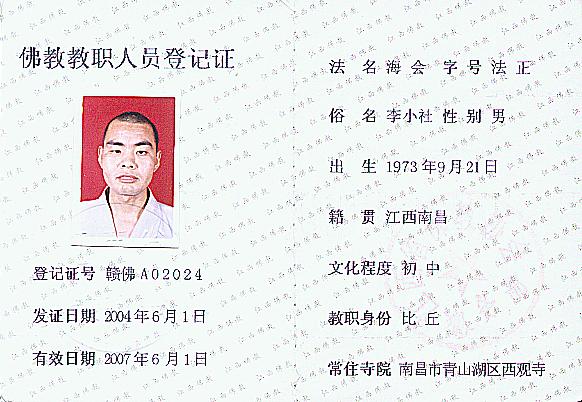 佛教教职人员登记证
登记证号 赣佛A02024
发证日期 2004年6月1日
有效日期 2007年6月1日
法 名 海 会 字 号 法 正
俗 名 李小社 性 别 男
出 生 1973年9月21日
籍 贯 江西南昌
文化程度 初 中
教职身份 比 丘
常住寺院 南昌市青山湖区西观寺